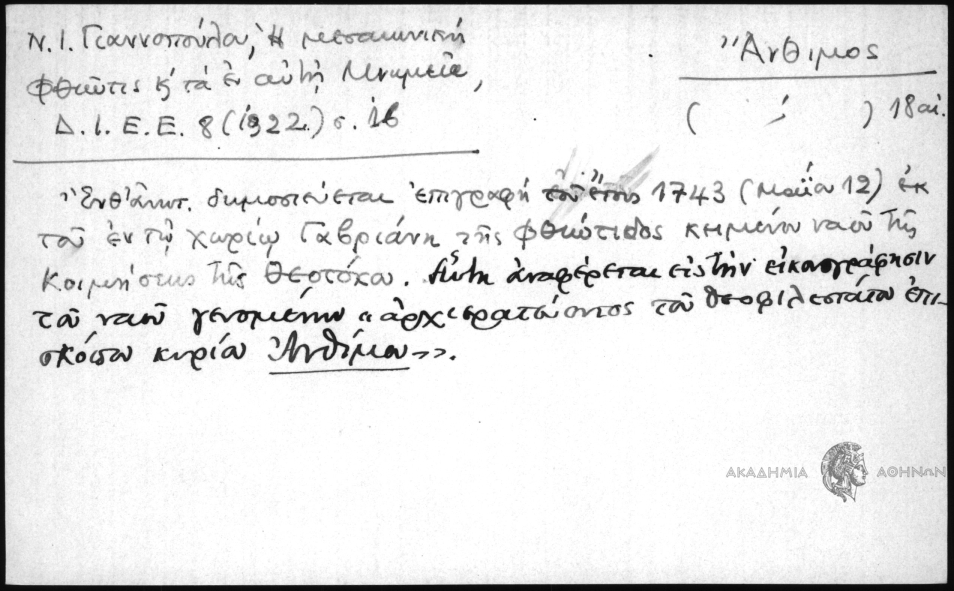 Ν. Ι. Γιαννοπούλου, Ἡ μεσαιωνική
Φθιῶτις κ' τὰ ἐν αὐτῇ Μνημεῖα,
Δ. Ι. Ε. Ε. 8 (1922) σ. 16
Ἄνθιμος
( ) 18 αἰ.
Ἐνθ' ἀνωτ. δημοσιεύεται ἐπιγραφὴ τοῦ ἔτους 1743 (Μαΐου 12) ἐκ
τοῦ ἐν τῷ χωρίῳ Γαβριάνη τῆς Φθιώτιδος κειμένου ναοῦ τῆς
Κοιμήσεως τῆς Θεοτόκου. Αὕτη ἀναφέρεται εἰς τὴν εἰκονογράφησιν
τοῦ ναοῦ γενομένην «ἀρχιερατεύοντος τοῦ θεοφιλεστάτου ἐπι-
σκόπου κυρίου Ἀνθίμου».
ΑΚΑΔΗΜΙΑ ΑΘΗΝΩΝ